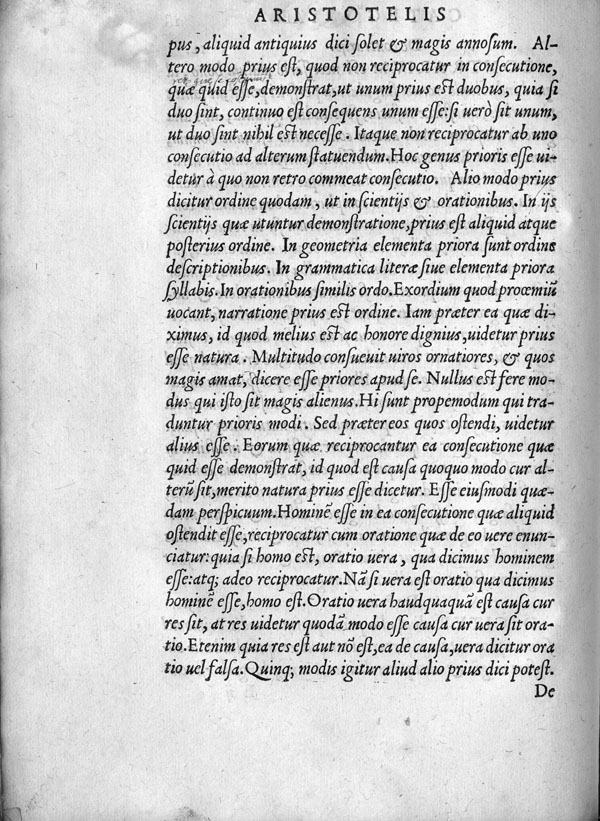 ARISTOTELIS
pus, aliquid antiquius dici solet & magis annosum. Al-
tero modo prius est, quod non reciprocatur in consecutione,
quæ quid esse, demonstrat, ut unum prius est duobus, quia si
duo sint, continuo est consequens unum esse: si uerò sit unum,
ut duo sint nihil est necesse. Itaque non reciprocatur ab uno
consecutio ad alterum statuendum. Hoc genus prioris esse ui-
detur à quo non retro commeat consecutio. Alio modo prius
dicitur ordine quodam, ut in scientijs & orationibus. In ijs
scientijs quæ utuntur demonstratione, prius est aliquid atque
posterius ordine. In geometria elementa priora sunt ordine
descriptionibus. In grammatica literæ siue elementa priora
syllabis. In orationibus similis ordo. Exordium quod proœmiũ
uocant, narratione prius est ordine. Iam præter ea quæ di-
ximus, id quod melius est ac honore dignius, uidetur prius
esse natura. Multitudo consueuit uiros ornatiores, & quos
magis amat, dicere esse priores apud se. Nullus est fere mo-
dus qui isto sit magis alienus. Hi sunt propemodum qui tra-
duntur prioris modi. Sed præter eos quos ostendi, uidetur
alius esse. Eorum quæ reciprocantur ea consecutione quæ
quid esse demonstrat, id quod est causa quoquo modo cur al-
terũ sit, merito natura prius esse dicetur. Esse eiusmodi quæ-
dam perspicuum. Hominẽ esse in ea consecutione quæ aliquid
ostendit esse, reciprocatur cum oratione quæ de eo uere enun-
ciatur: quia si homo est, oratio uera, qua dicimus hominem
esse: atq; adeo reciprocatur. Nã si uera est oratio qua dicimus
hominẽ esse, homo est. Oratio uera haudquaquã est causa cur
res sit, at res uidetur quodã modo esse causa cur uera sit ora-
tio. Etenim quia res est aut nõ est, ea de causa, uera dicitur ora
tio uel falsa. Quinq; modis igitur aliud alio prius dici potest.
De